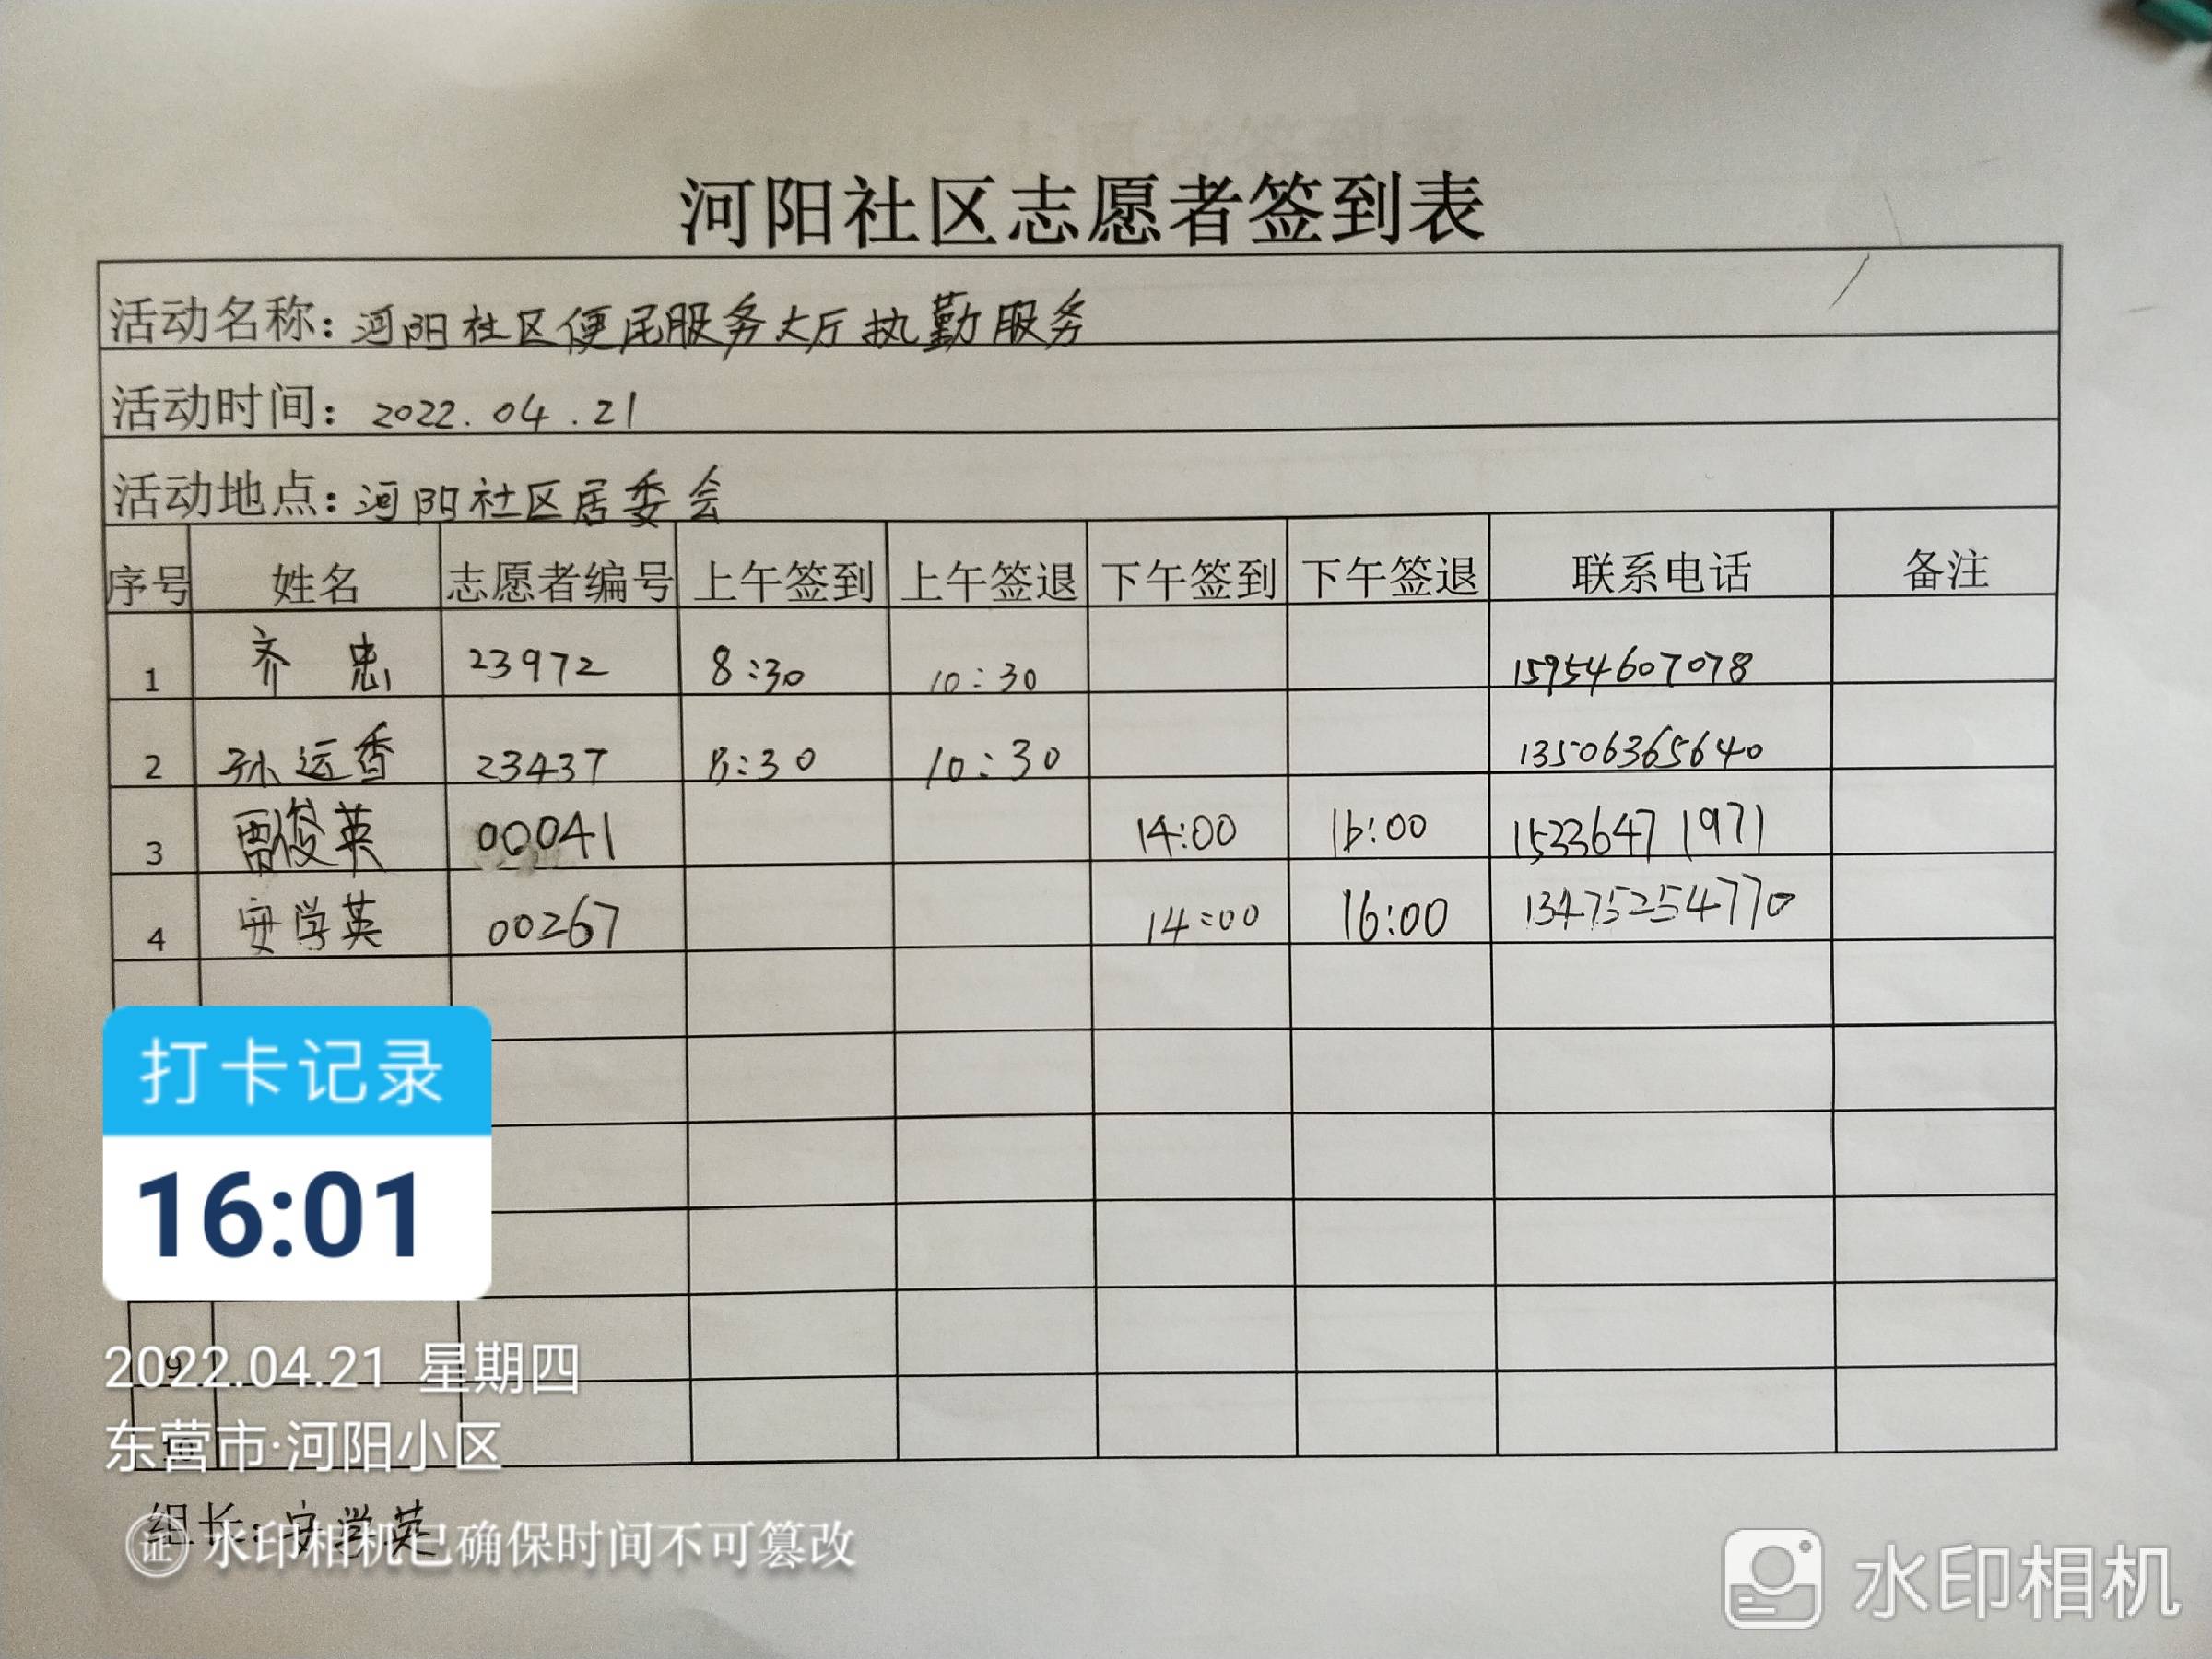 河阳社区志愿者签到表
活动名称：河阳社区便民服务大厅执勤服务
活动时间：2022.04.21
活动地点：河阳社区居委会
序号 姓名 志愿者编号 上午签到 上午签退 下午签到 下午签退 联系电话 备注
1 齐忠 23972 8:30 10:30 15954607078
2 孙运香 23437 8:30 10:30 13506365640
3 贾俊英 00041 14:00 16:00 15233647 1971
4 安学英 00267 14:00 16:00 13475254770
打卡记录
16:01
9
2022.04.21 星期四
10
东营市·河阳小区
组长：安学英
证 水印相机已确保时间不可篡改
水印相机